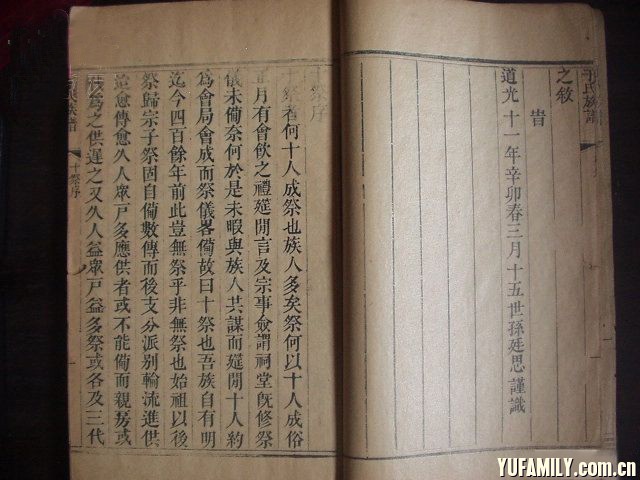 氏族譜
之敘
旹
道光十一年辛卯春三月十五世孫廷思謹識
十祭序
十祭者何十人成祭也族人多矣祭何以十人成俗
正月有會飲之禮筵閒言及宗事僉謂祠堂旣修祭
儀未備奈何於是未暇與族人共謀而筵閒十人約
為會局會成而祭儀畧備故曰十祭也吾族自有明
迄今四百餘年前此豈無祭乎非無祭也始祖以後
祭歸宗子祭固自備數傳而後支分派別輪流進供
迨愈傳愈久人眾戶多應供者或不能備而親房或
為之供遲之又久人益眾戶益多祭或各及三代
族譜
十祭序
YUFAMILY.com.cn